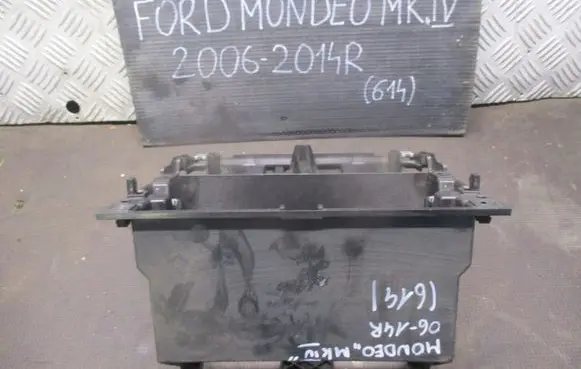 FORD MONDEO MK.IV
2006-2014R
(614)
MONDEO „MKIV"
06-14R
(614)